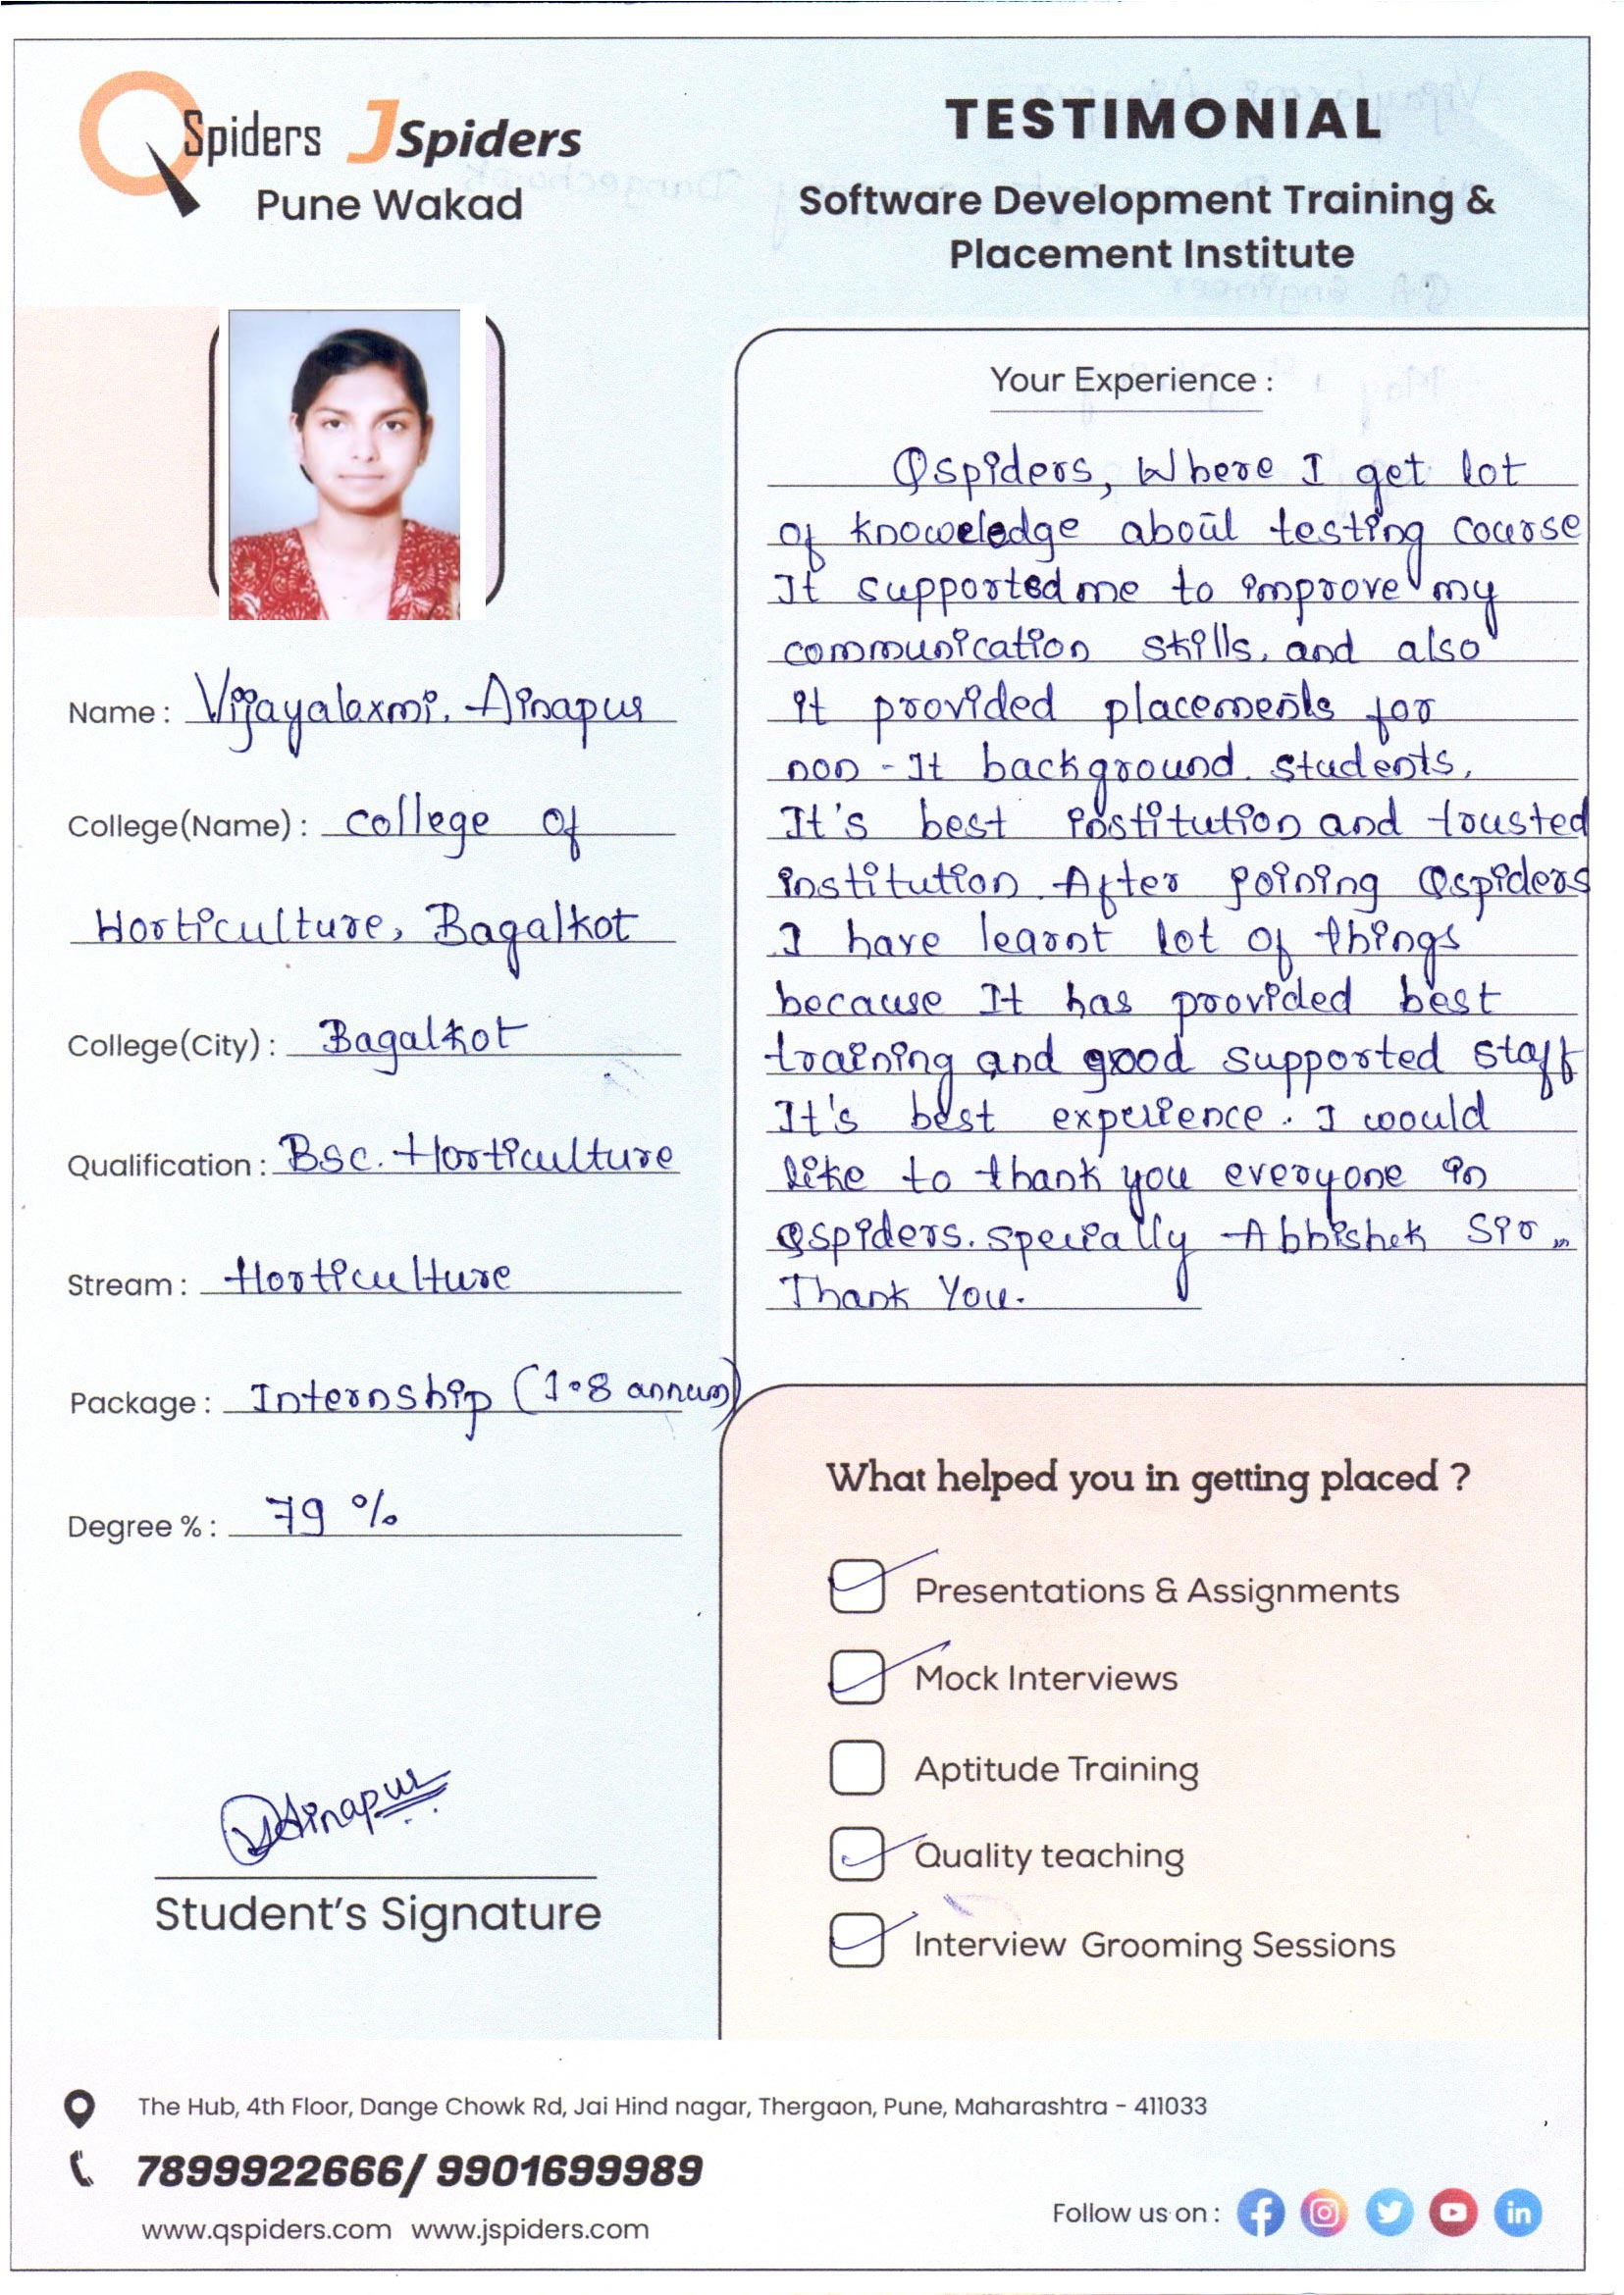 QSpiders JSpiders
Pune Wakad
TESTIMONIAL
Software Development Training &
Placement Institute
Name : Vijayalaxmi. Ainapur
College(Name) : college of
Horticulture, Bagalkot
College(City) : Bagalkot
Qualification : Bsc. Horticulture
Stream : Horticulture
Package : Internship (1.8 annum)
Degree % : 79 %
Ainapur
Student's Signature
Your Experience :
Qspiders, Where I get lot
of knoweledge about testing course
It supported me to improve my
communication skills. and also
it provided placements for
non - It background. students.
It's best institution and trusted
institution. After joining Qspiders
I have learnt lot of things
because It has provided best
training and good supported staff
It's best experience. I would
like to thank you everyone in
Qspiders. specially Abhishek Sir
Thank You.
What helped you in getting placed ?
Presentations & Assignments
Mock Interviews
Aptitude Training
Quality teaching
Interview Grooming Sessions
The Hub, 4th Floor, Dange Chowk Rd, Jai Hind nagar, Thergaon, Pune, Maharashtra - 411033
7899922666/ 9901699989
www.qspiders.com www.jspiders.com
Follow us on :